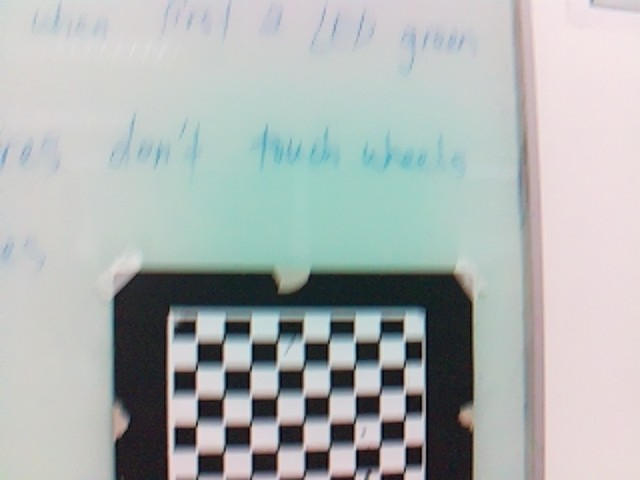 when first 2 LED green
don't touch wheels